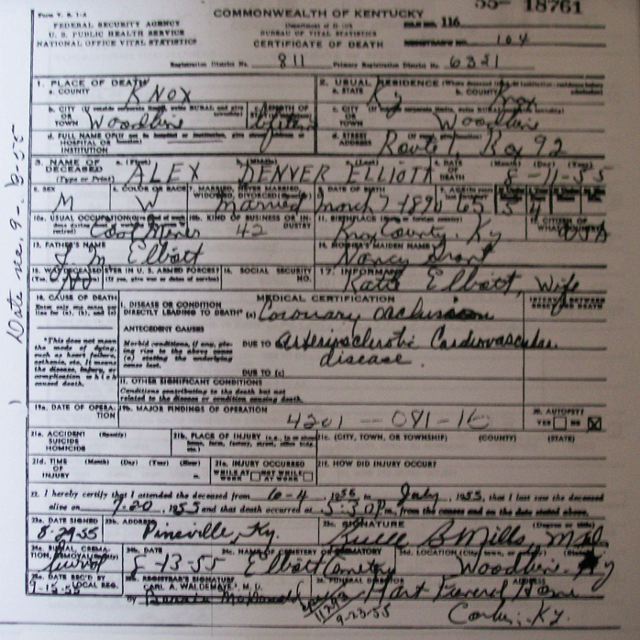 Form V. S. 1-A
COMMONWEALTH OF KENTUCKY 55- 18761
FEDERAL SECURITY AGENCY 116
U. S. PUBLIC HEALTH SERVICE BUREAU OF VITAL STATISTICS
NATIONAL OFFICE VITAL STATISTICS CERTIFICATE OF DEATH REGISTRAR'S NO. 104
Registration District No. 811 Primary Registration District No. 6321
1. PLACE OF DEATH 2. USUAL RESIDENCE
a. COUNTY KNOX a. STATE Ky b. COUNTY Knox
b. CITY OR TOWN Woodbine LENGTH OF Lifetime c. CITY OR TOWN Woodbine
d. FULL NAME OF HOSPITAL OR INSTITUTION d. STREET ADDRESS Route 1, Box 92
3. NAME OF DECEASED (Type or Print) a. (First) ALEX b. (Middle) DENVER c. (Last) ELLIOTT 4. DATE OF DEATH (Month) (Day) (Year) 8-11-55
5. SEX M 6. COLOR OR RACE W 7. MARRIED, NEVER MARRIED, WIDOWED, DIVORCED Married 8. DATE OF BIRTH March 7 1890 65 5 4
10a. USUAL OCCUPATION Coal Miner 10b. KIND OF BUSINESS OR INDUSTRY 42 11. BIRTHPLACE Knox County, Ky 12. CITIZEN OF WHAT COUNTRY USA
13. FATHER'S NAME J. M. Elliott MAIDEN NAME Nancy Grant
15. WAS DECEASED EVER IN U. S. ARMED FORCES? No 16. SOCIAL SECURITY NO. 17. INFORMANT Kate Elliott, Wife
18. CAUSE OF DEATH MEDICAL CERTIFICATION
I. DISEASE OR CONDITION DIRECTLY LEADING TO DEATH* (a) Coronary occlusion
ANTECEDENT CAUSES
*This does not mean the mode of dying, such as heart failure, asthenia, etc. It means the disease, injury, or complication which caused death.
Morbid conditions, if any, giving rise to the above cause (a) stating the underlying cause last.
DUE TO Arteriosclerotic Cardiovascular disease.
DUE TO (c)
II. OTHER SIGNIFICANT CONDITIONS
Conditions contributing to the death but not related to the disease or condition causing death.
19a. DATE OF OPERATION 19b. MAJOR FINDINGS OF OPERATION 4201-081-16 20. AUTOPSY? YES NO X
21a. ACCIDENT SUICIDE HOMICIDE (Specify) 21b. PLACE OF INJURY 21c. (CITY, TOWN, OR TOWNSHIP) (COUNTY) (STATE)
21d. TIME OF INJURY (Month) (Day) (Year) (Hour) 21e. INJURY OCCURRED WHILE AT WORK NOT WHILE AT WORK 21f. HOW DID INJURY OCCUR?
22. I hereby certify that I attended the deceased from 6-4, 1955 to July, 1955, that I last saw the deceased
alive on 7-20, 1955 and that death occurred at 5:30 Pm, from the causes and on the date stated above.
23a. DATE SIGNED 8-29-55 23b. ADDRESS Pineville, Ky. 23c. SIGNATURE B Mills, M.D.
24a. BURIAL, CREMATION, REMOVAL Burial 24b. DATE 8-13-55 24c. NAME OF CEMETERY OR CREMATORY Elliott Cemetery 24d. LOCATION Woodbine, Ky
25a. DATE REC'D BY LOCAL REG. 9-15-55 25b. REGISTRAR'S SIGNATURE CARL A. WALDEMAYER, M. D. FUNERAL DIRECTOR Hart Funeral Home ADDRESS
9-23-55 Corbin, Ky.
Date rec. 9-13-55